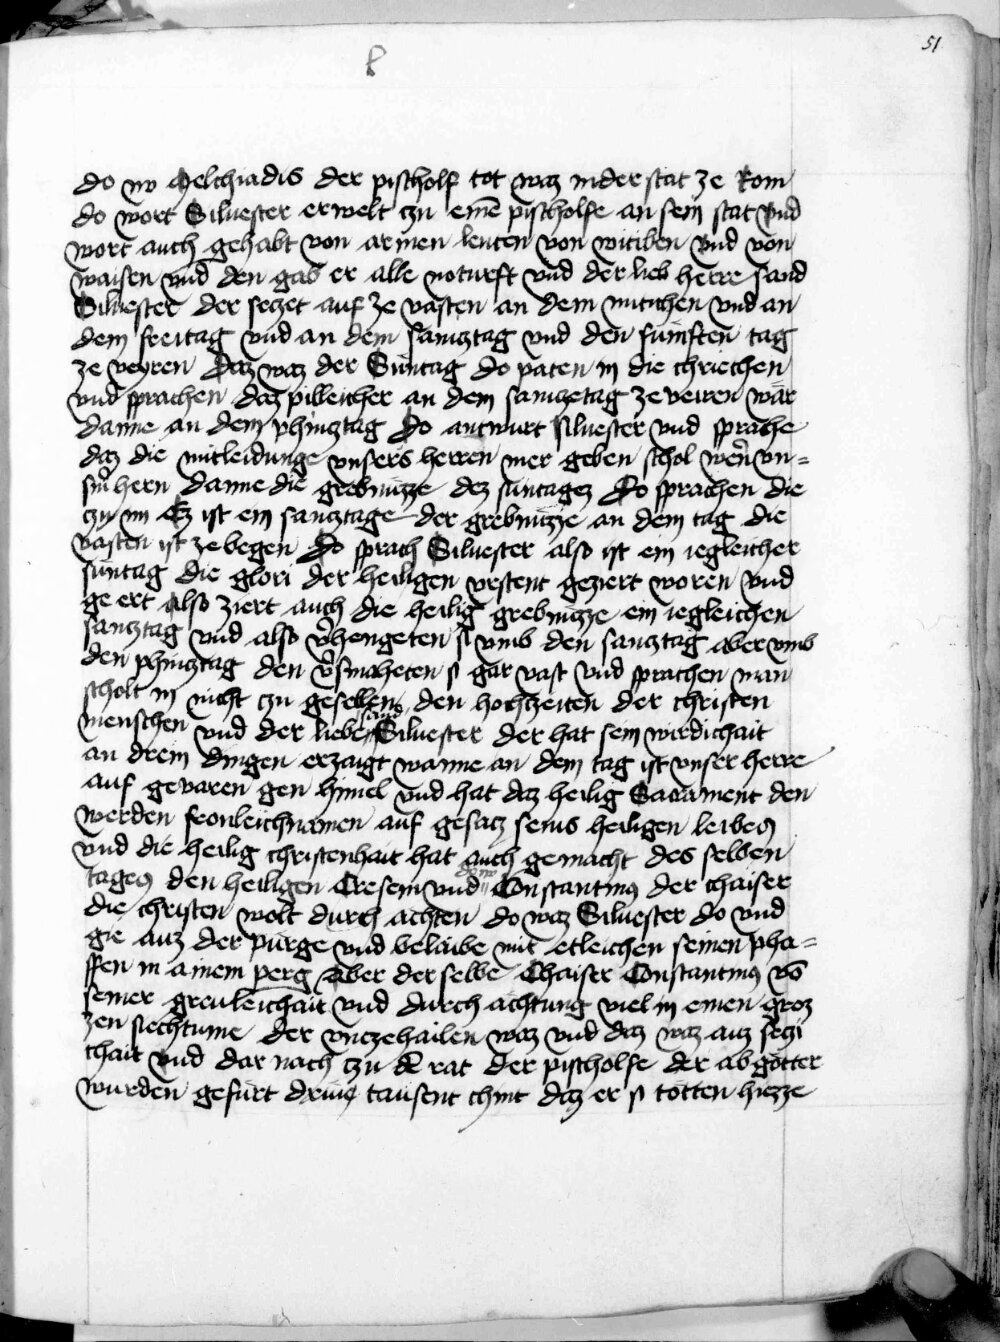 51
do nv Melchiadis der pischolf tot waz in der stat ze Rom
do wort Siluester erwelt czu eine᷑ pischolfe an sein stat vnd
wort auch gehabt von armen leuten von witiben vnd von
waisen vnd den gab er alle noturft vnd der lieb herre sand
Siluester der seczet auf ze vasten an dem mitichen vnd an
dem freitag vnd an dem samcztag vnd den fümften tag
ze veyren daz waz der Suntag do paten in die chriechen
vnd sprachen daz pilleicher an dem samcztag ze veiren wär
danne an dem phincztag do antwurt siluester vnd sprache
daz die mitleidunge vnsers herren mer geben schol wen vn=
sin hern danne die grebnüzze dez suntagez do sprachen die
czu im Ez ist ein samcztage der grebnüzze an dem tag die
vasten ist ze begen do sprach Siluester also ist ein iegleicher
suntag die glori der heiligen vrstent geziert woren vnd
ge ert also ziert auch die heilig grebnüzze ein iegleichen
samcztag vnd also v᷑hengeten si vmb den samcztag aber vmb
den phincztag den v᷑smeheten si gar vast vnd sprachen man
scholt in nicht czu gesellen den hochzeiten der christen
menschen vnd der liebe sand Siluester der hat sein wirdichait
an drein dingen erzaigt wanne an dem tag ist vnser herre
auf gevaren gen himel vnd hat daz heilig Sacrament den
werden fronleichnamen auf gesacz seins heiligen leibes
vnd die heilig christenhait hat auch gemacht des selben
tages den heiligen Cresem vnd do nv Constantinus der chaiser
die christen wolt durch achten do waz Siluester do vnd
gie auz der pürge vnd belaibe mit etleichen seinen pha=
ffen in ainem perg Aber der selbe Chaiser Constantinus vo᷑
seiner greuleichait vnd durch achtung viel in einen groz
zen siechtume der vnczehailen waz vnd daz waz auz seczi
chait vnd dar nach czu d᷑ rat der pischolfe der abgötter
wurden gefürt dreuz tausent chint daz er si tötten hiezze